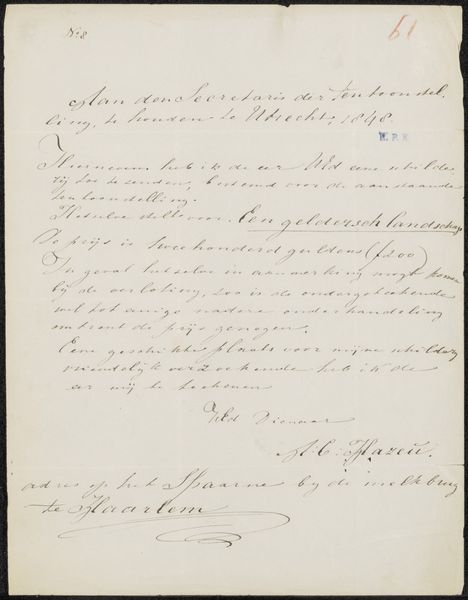 No 8
61
Aan den Secretaris der Tentoonstel-
ling, te houden te Utrecht, 1848.
R. P. K.
Hiernevens heb ik de eer UEd eene schilde
rij toe te zenden, bestemd voor de aanstaande
tentoonstelling.
Hetselve stelt voor. Een geldersch landschap
De prijs is tweehonderd guldens (ƒ200)
In geval hetselve in aanmerking mogt komen
bij de verloting, zoo is de ondergeteekende
wel tot eenige nadere onderhandeling
omtrent de prijs genegen.
Eene geschikte plaats voor mijne schilderij
vriendelijk verzoekende heb ik de
eer mij te teekenen
UEd Dienaar
A. C. Hazeu.
adres op het Spaarne bij de melkbrug
te Haarlem